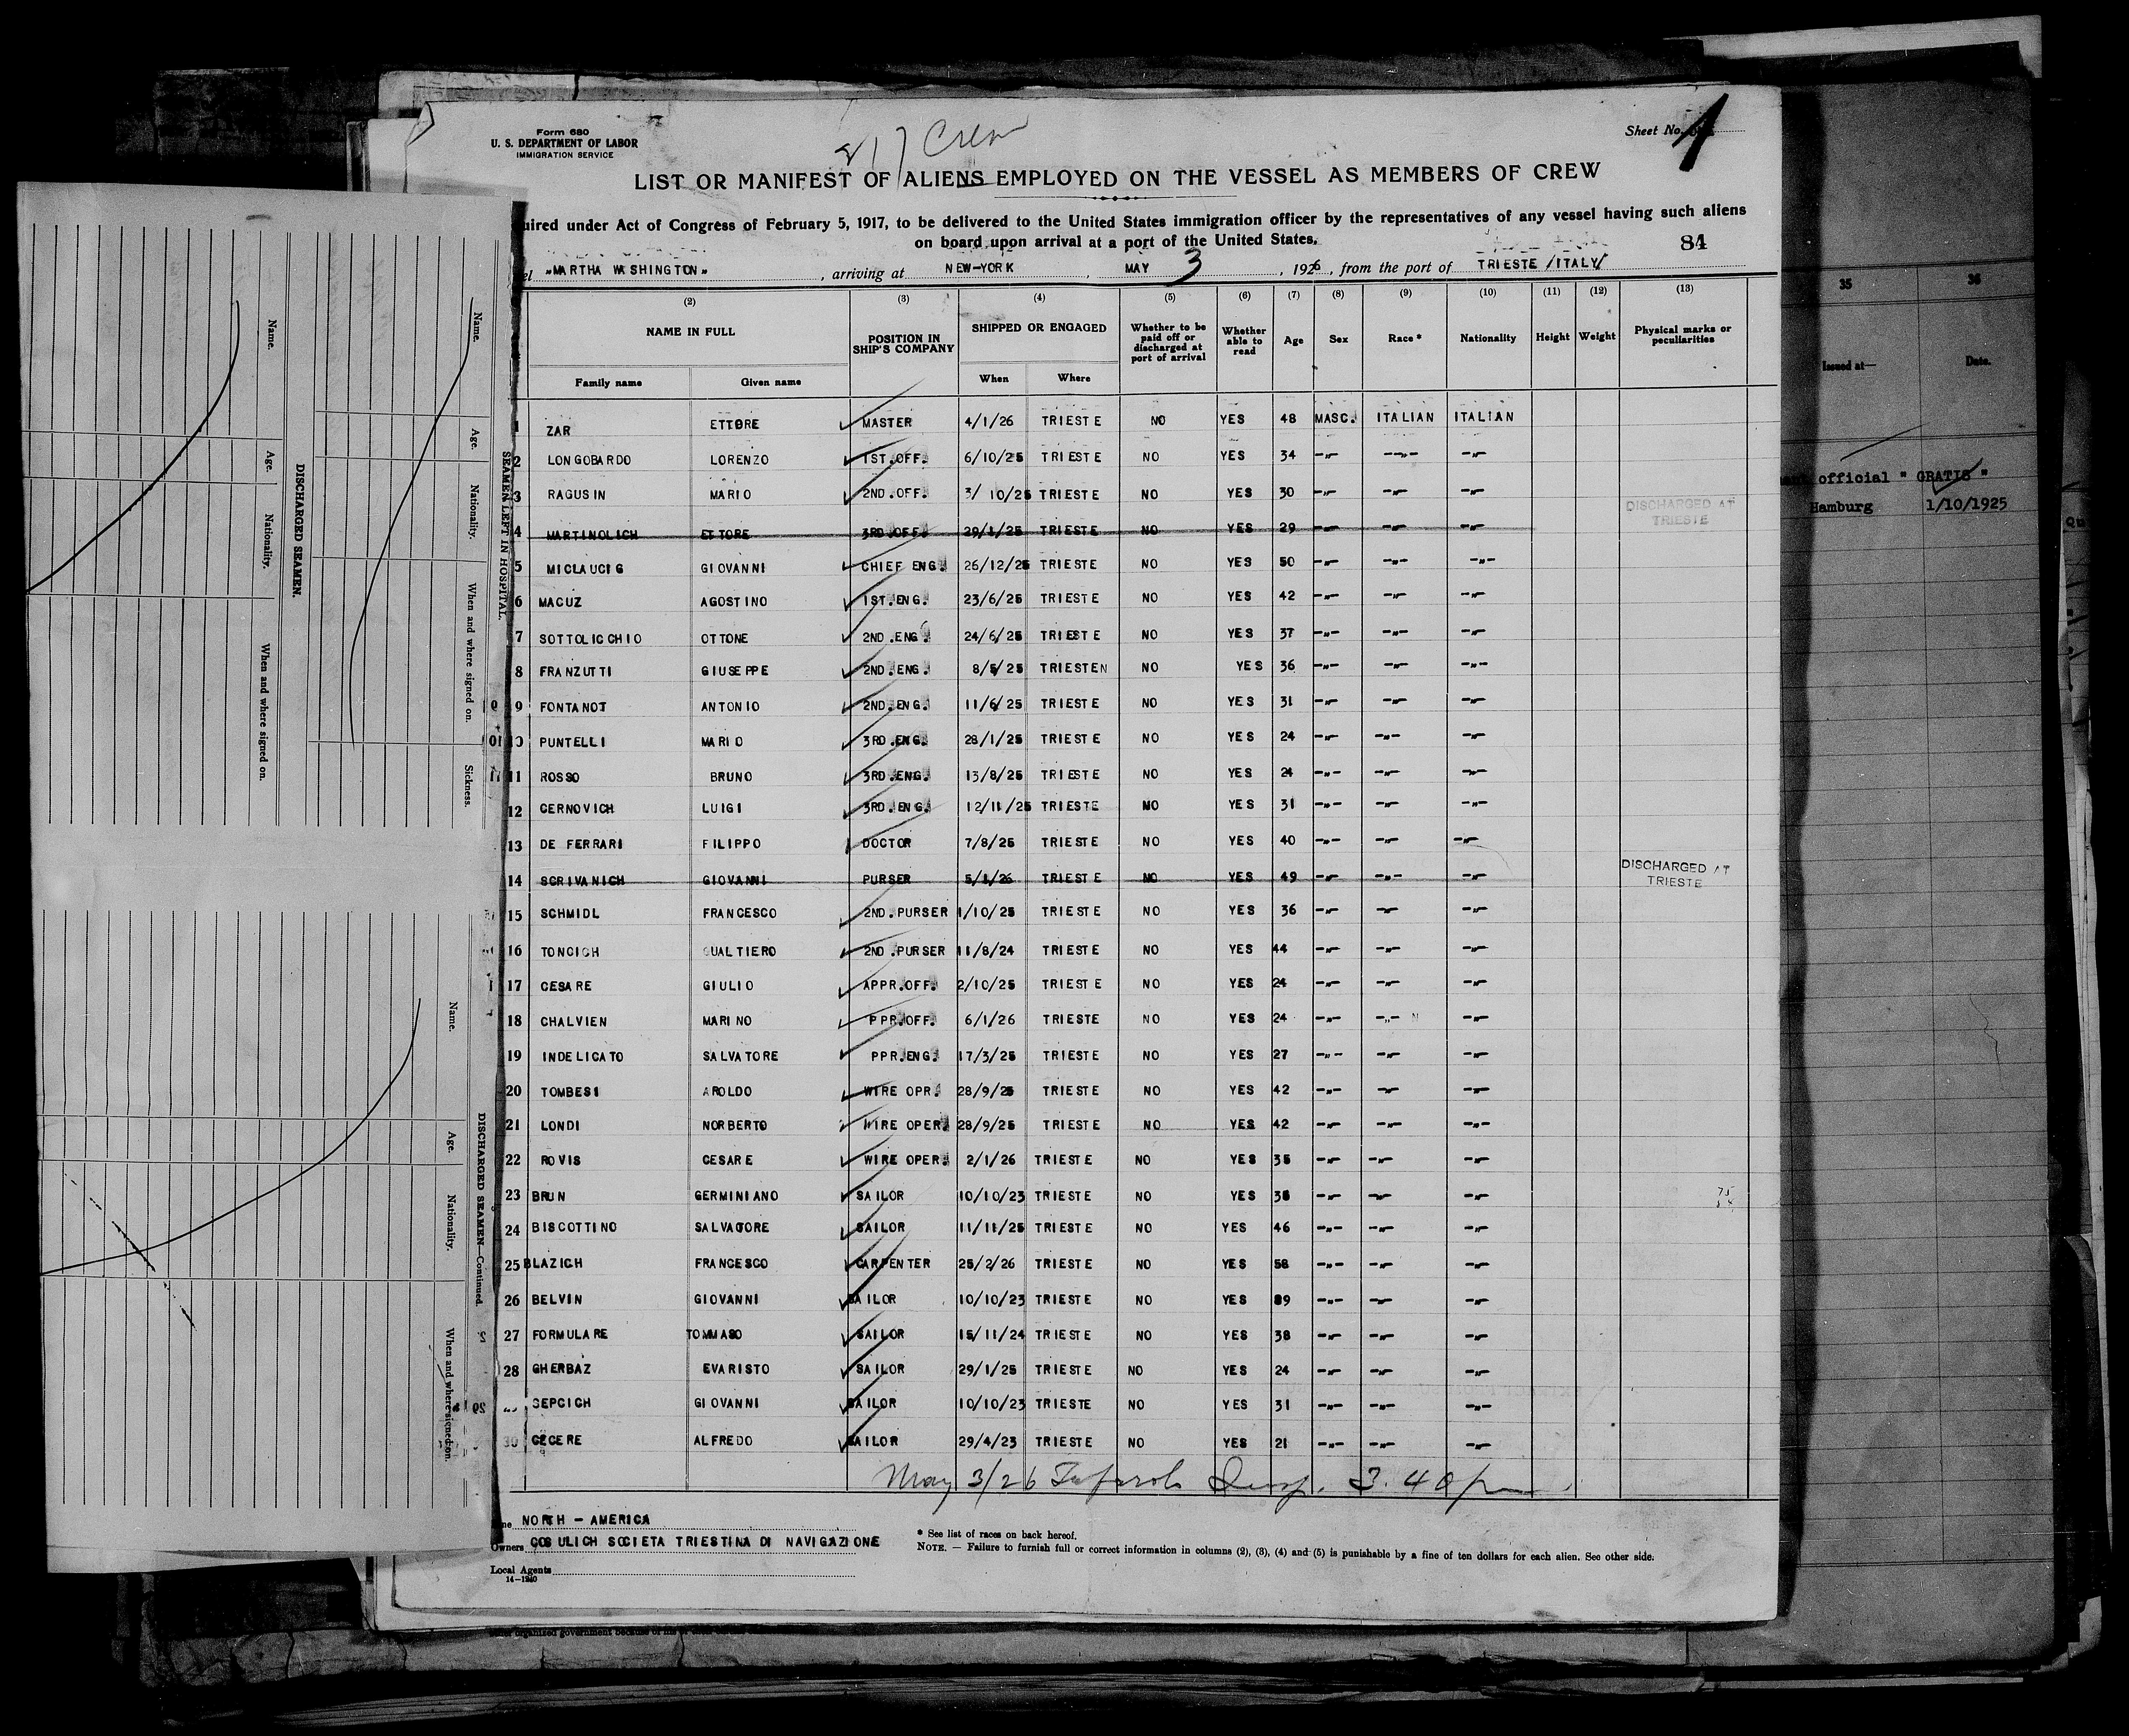 Form 680
U. S. DEPARTMENT OF LABOR
IMMIGRATION SERVICE
217 Crew
Sheet No. 1
LIST OR MANIFEST OF ALIENS EMPLOYED ON THE VESSEL AS MEMBERS OF CREW
uired under Act of Congress of February 5, 1917, to be delivered to the United States immigration officer by the representatives of any vessel having such aliens
on board upon arrival at a port of the United States.
84
el "MARTHA WASHINGTON", arriving at NEW-YORK, MAY 3, 1926, from the port of TRIESTE /ITALY/
(2) (3) (4) (5) (6) (7) (8) (9) (10) (11) (12) (13)
NAME IN FULL POSITION IN SHIP'S COMPANY SHIPPED OR ENGAGED Whether to be paid off or discharged at port of arrival Whether able to read Age Sex Race * Nationality Height Weight Physical marks or peculiarities
Family name Given name When Where
1 ZAR ETTORE MASTER 4/1/26 TRIESTE NO YES 48 MASC. ITALIAN ITALIAN
2 LONGOBARDO LORENZO 1ST.OFF. 6/10/25 TRIESTE NO YES 34 -"- -"- -"-
3 RAGUSIN MARIO 2ND.OFF. 3/10/25 TRIESTE NO YES 30 -"- -"- -"-
DISCHARGED AT TRIESTE
4 MARTINOLICH ETTORE 3RD.OFF. 29/1/25 TRIESTE NO YES 29 -"- -"- -"-
5 MICLAUCIG GIOVANNI CHIEF ENG. 26/12/25 TRIESTE NO YES 50 -"- -"- -"-
6 MACUZ AGOSTINO 1ST.ENG. 23/6/25 TRIESTE NO YES 42 -"- -"- -"-
7 SOTTOLICCHIO OTTONE 2ND.ENG. 24/6/25 TRIESTE NO YES 37 -"- -"- -"-
8 FRANZUTTI GIUSEPPE 2ND.ENG. 8/5/25 TRIESTEN NO YES 36 -"- -"- -"-
9 FONTANOT ANTONIO 2ND.ENG. 11/6/25 TRIESTE NO YES 31 -"- -"- -"-
10 PUNTELLI MARIO 3RD.ENG. 28/1/25 TRIESTE NO YES 24 -"- -"- -"-
11 ROSSO BRUNO 3RD.ENG. 13/8/25 TRIESTE NO YES 24 -"- -"- -"-
12 CERNOVICH LUIGI 3RD.ENG. 12/11/25 TRIESTE NO YES 31 -"- -"- -"-
13 DE FERRARI FILIPPO DOCTOR 7/8/25 TRIESTE NO YES 40 -"- -"- -"-
14 SCRIVANICH GIOVANNI PURSER 5/1/26 TRIESTE NO YES 49 -"- -"- -"- DISCHARGED AT TRIESTE
15 SCHMIDL FRANCESCO 2ND.PURSER 1/10/25 TRIESTE NO YES 36 -"- -"- -"-
16 TONCICH GUALTIERO 2ND.PURSER 11/8/24 TRIESTE NO YES 44 -"- -"- -"-
17 CESARE GIULIO APPR.OFF. 2/10/25 TRIESTE NO YES 24 -"- -"- -"-
18 CHALVIEN MARINO PPR.OFF. 6/1/26 TRIESTE NO YES 24 -"- -"- -"-
19 INDELICATO SALVATORE PPR.ENG. 17/3/25 TRIESTE NO YES 27 -"- -"- -"-
20 TOMBESI AROLDO WIRE OPR. 28/9/25 TRIESTE NO YES 42 -"- -"- -"-
21 LONDI NORBERTO WIRE OPER. 28/9/25 TRIESTE NO YES 42 -"- -"- -"-
22 ROVIS CESARE WIRE OPER. 2/1/26 TRIESTE NO YES 35 -"- -"- -"-
23 BRUN GERMINIANO SAILOR 10/10/23 TRIESTE NO YES -"- -"- -"-
24 BISCOTTINO SALVATORE SAILOR 11/11/25 TRIESTE NO YES 46 -"- -"- -"-
25 BLAZICH FRANCESCO CARPENTER 25/2/26 TRIESTE NO YES 58 -"- -"- -"-
26 BELVIN GIOVANNI SAILOR 10/10/23 TRIESTE NO YES -"- -"- -"-
27 FORMULARE TOMMASO SAILOR 15/11/24 TRIESTE NO YES 38 -"- -"- -"-
28 GHERBAZ EVARISTO SAILOR 29/1/25 TRIESTE NO YES 24 -"- -"- -"-
SEPCICH GIOVANNI SAILOR 10/10/23 TRIESTE NO YES 31 -"- -"- -"-
30 CECERE ALFREDO SAILOR 29/4/23 TRIESTE NO YES 21 -"- -"- -"-
May 3/26 Insp. 3.40 pm
NORTH - AMERICA
Owners COSULICH SOCIETA TRIESTINA DI NAVIGAZIONE
Local Agents
14-1240
* See list of races on back hereof.
NOTE. — Failure to furnish full or correct information in columns (2), (3), (4) and (5) is punishable by a fine of ten dollars for each alien. See other side.
SEAMEN LEFT IN HOSPITAL.
Name. Age. Nationality. When and where signed on. Sickness.
DISCHARGED SEAMEN.
Name. Age. Nationality. When and where signed on.
DISCHARGED SEAMEN—Continued.
Name. Age. Nationality. When and where signed on.
35 36
Issued at— Date.
official "GRATIS"
Hamburg 1/10/1925